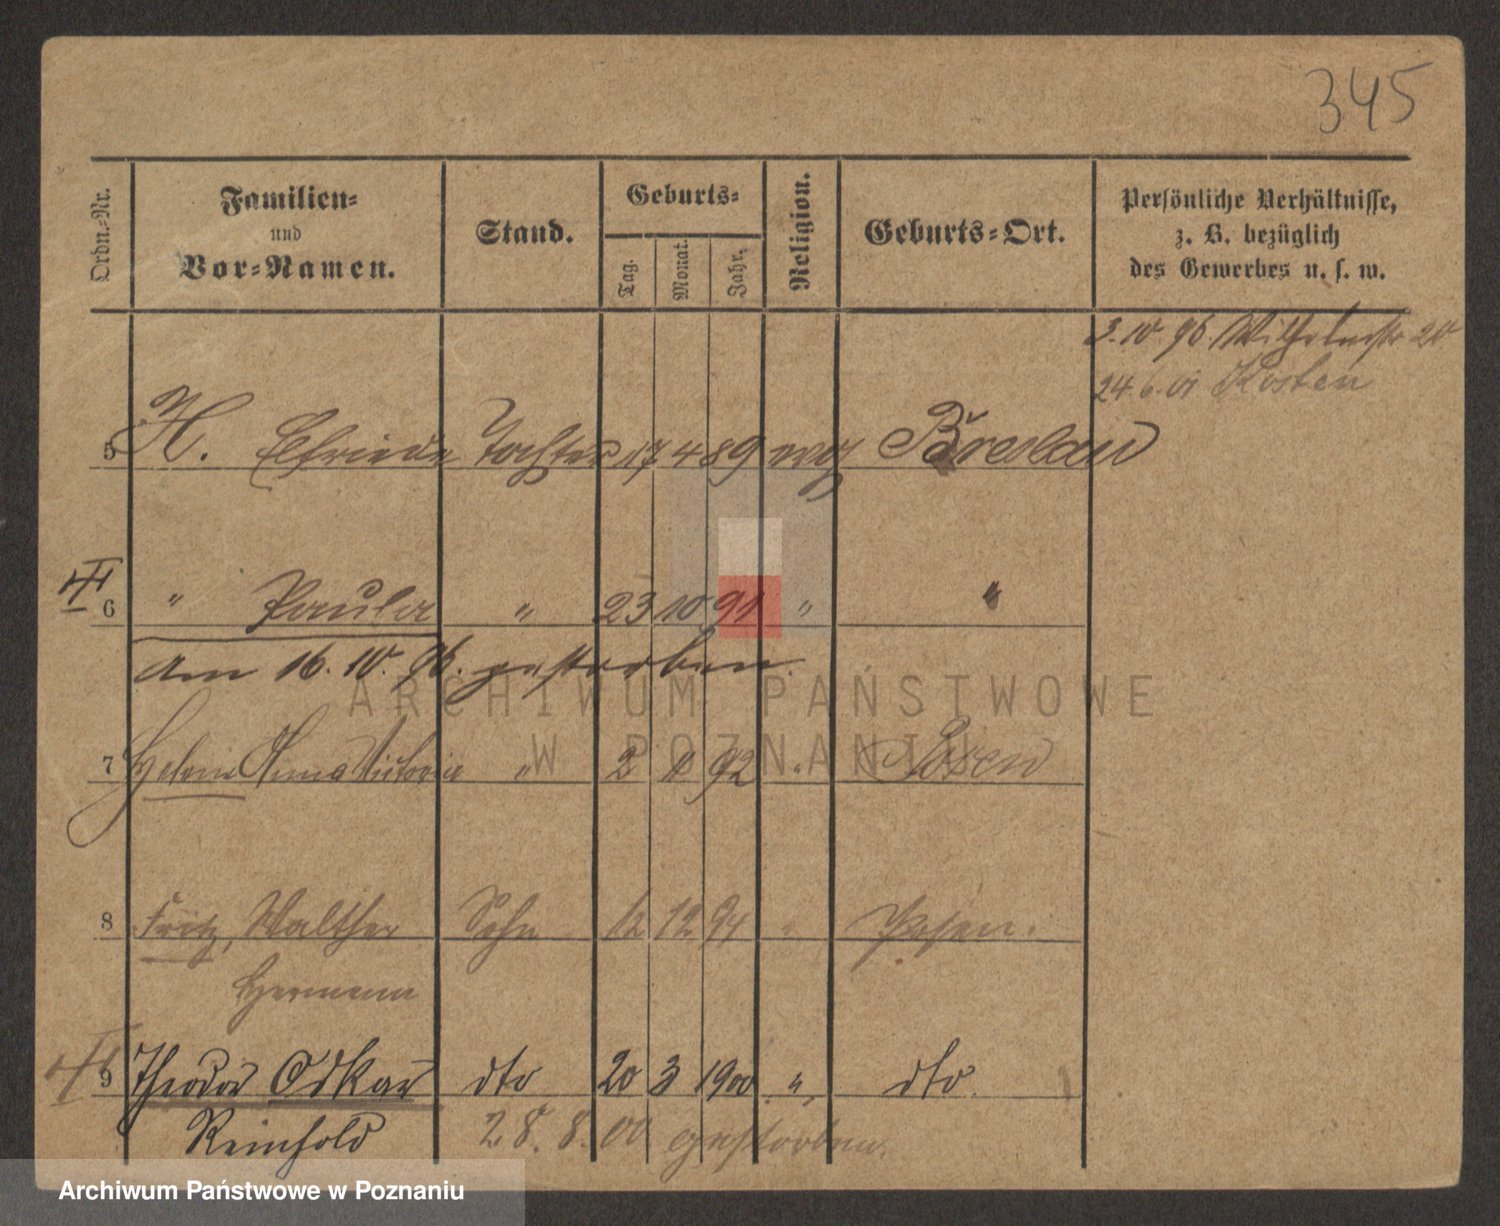 345
Ordn.-Nr.
Familien-
und
Vor-Namen.
Stand.
Geburts-
Tag.
Monat.
Jahr.
Religion.
Geburts-Ort.
Persönliche Verhältnisse,
z. B. bezüglich
des Gewerbes u. s. w.
3.10.96. Wilhelmstr 20
24.6.01 Kosten
5 H. Elfriede Tochter 17 4 89 evg Breslau
6 " Paula " 23 10 91 " "
am 16.10.96. gestorben.
7 Helene Anna Victoria " 2 11 92 " Posen
8 Fritz, Walther Sohn 12 12 94 " Posen.
Hermann
9 Theodor Oskar dto 20 3 1900 " dto.
Reinhold 28.8.00 gestorben.
ARCHIWUM PAŃSTWOWE
W POZNANIU
Archiwum Państwowe w Poznaniu